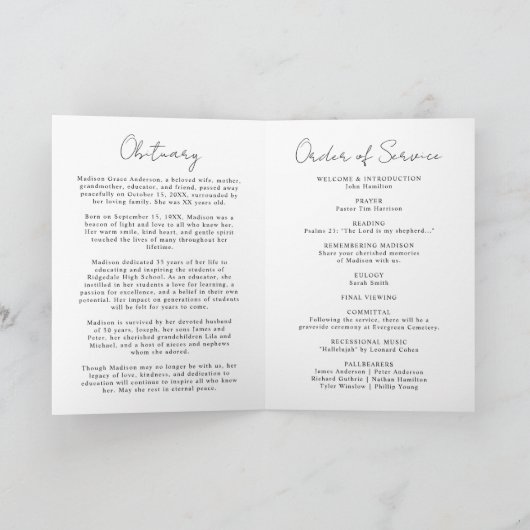 Obituary
Madison Grace Anderson, a beloved wife, mother,
grandmother, educator, and friend, passed away
peacefully on October 15, 20XX, surrounded by
her loving family. She was XX years old.
Born on September 15, 19XX, Madison was a
beacon of light and love to all who knew her.
Her warm smile, kind heart, and gentle spirit
touched the lives of many throughout her
lifetime.
Madison dedicated 35 years of her life to
educating and inspiring the students of
Ridgedale High School. As an educator, she
instilled in her students a love for learning, a
passion for excellence, and a belief in their own
potential. Her impact on generations of students
will be felt for years to come.
Madison is survived by her devoted husband
of 50 years, Joseph, her sons James and
Peter, her cherished grandchildren Lila and
Michael, and a host of nieces and nephews
whom she adored.
Though Madison may no longer be with us, her
legacy of love, kindness, and dedication to
education will continue to inspire all who knew
her. May she rest in eternal peace.
Order of Service
WELCOME & INTRODUCTION
John Hamilton
PRAYER
Pastor Tim Harrison
READING
Psalms 23: "The Lord is my shepherd..."
REMEMBERING MADISON
Share your cherished memories
of Madison with us.
EULOGY
Sarah Smith
FINAL VIEWING
COMMITTAL
Following the service, there will be a
graveside ceremony at Evergreen Cemetery.
RECESSIONAL MUSIC
"Hallelujah" by Leonard Cohen
PALLBEARERS
James Anderson | Peter Anderson
Richard Guthrie | Nathan Hamilton
Tyler Winslow | Phillip Young